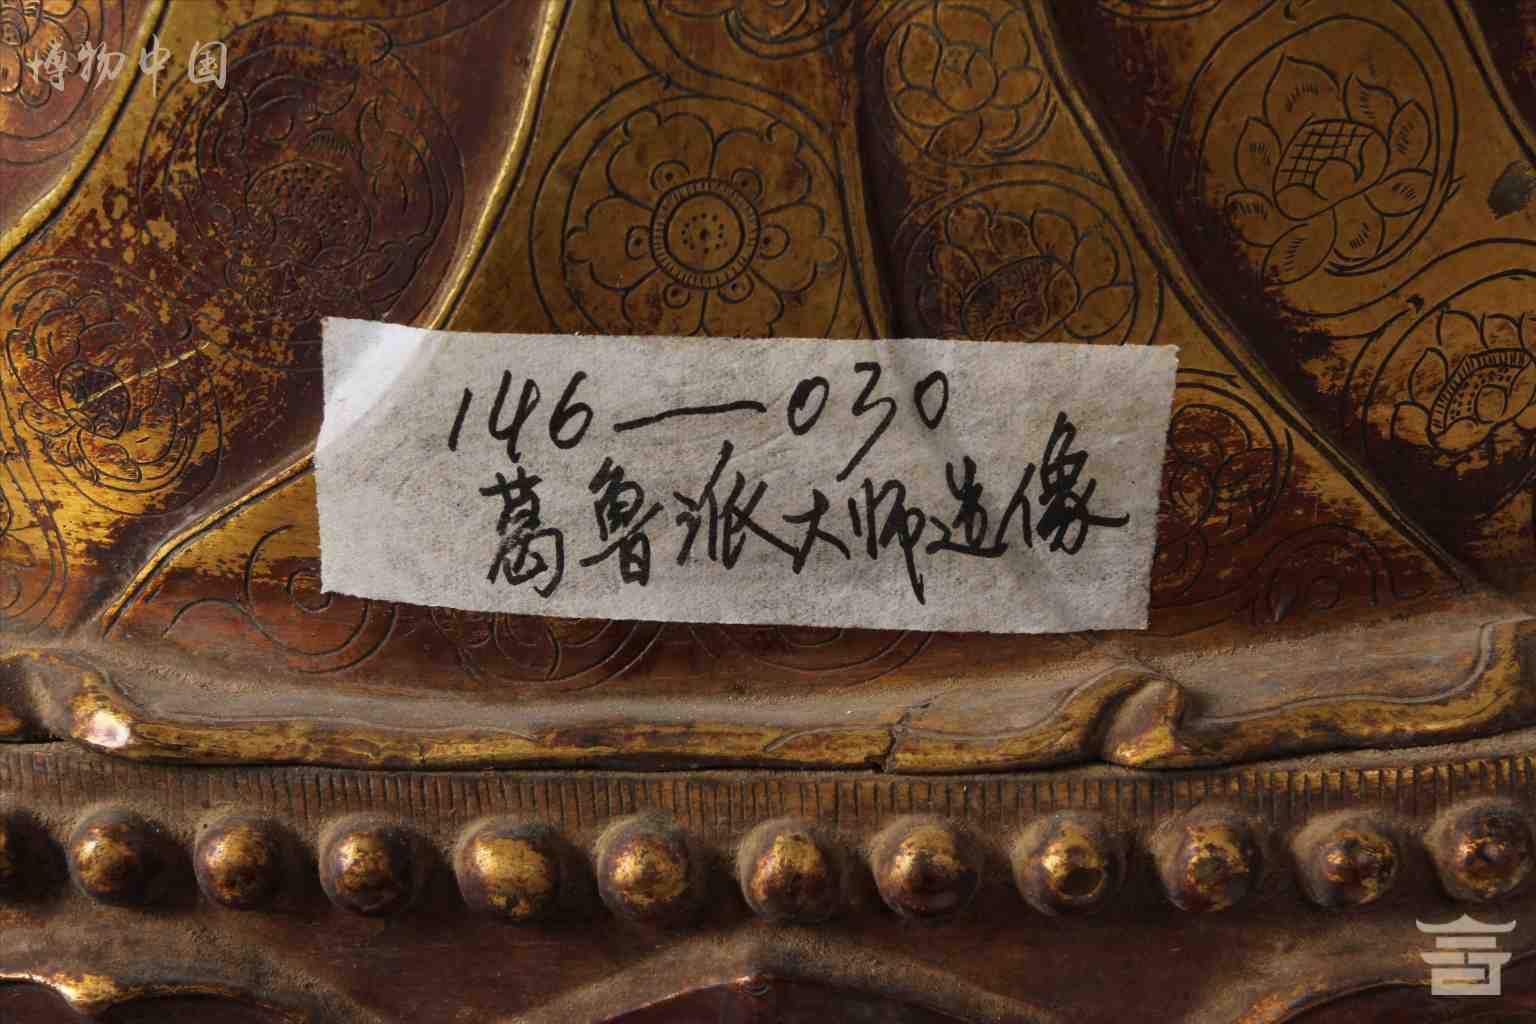 博物中国
146—030
葛鲁派大师造像